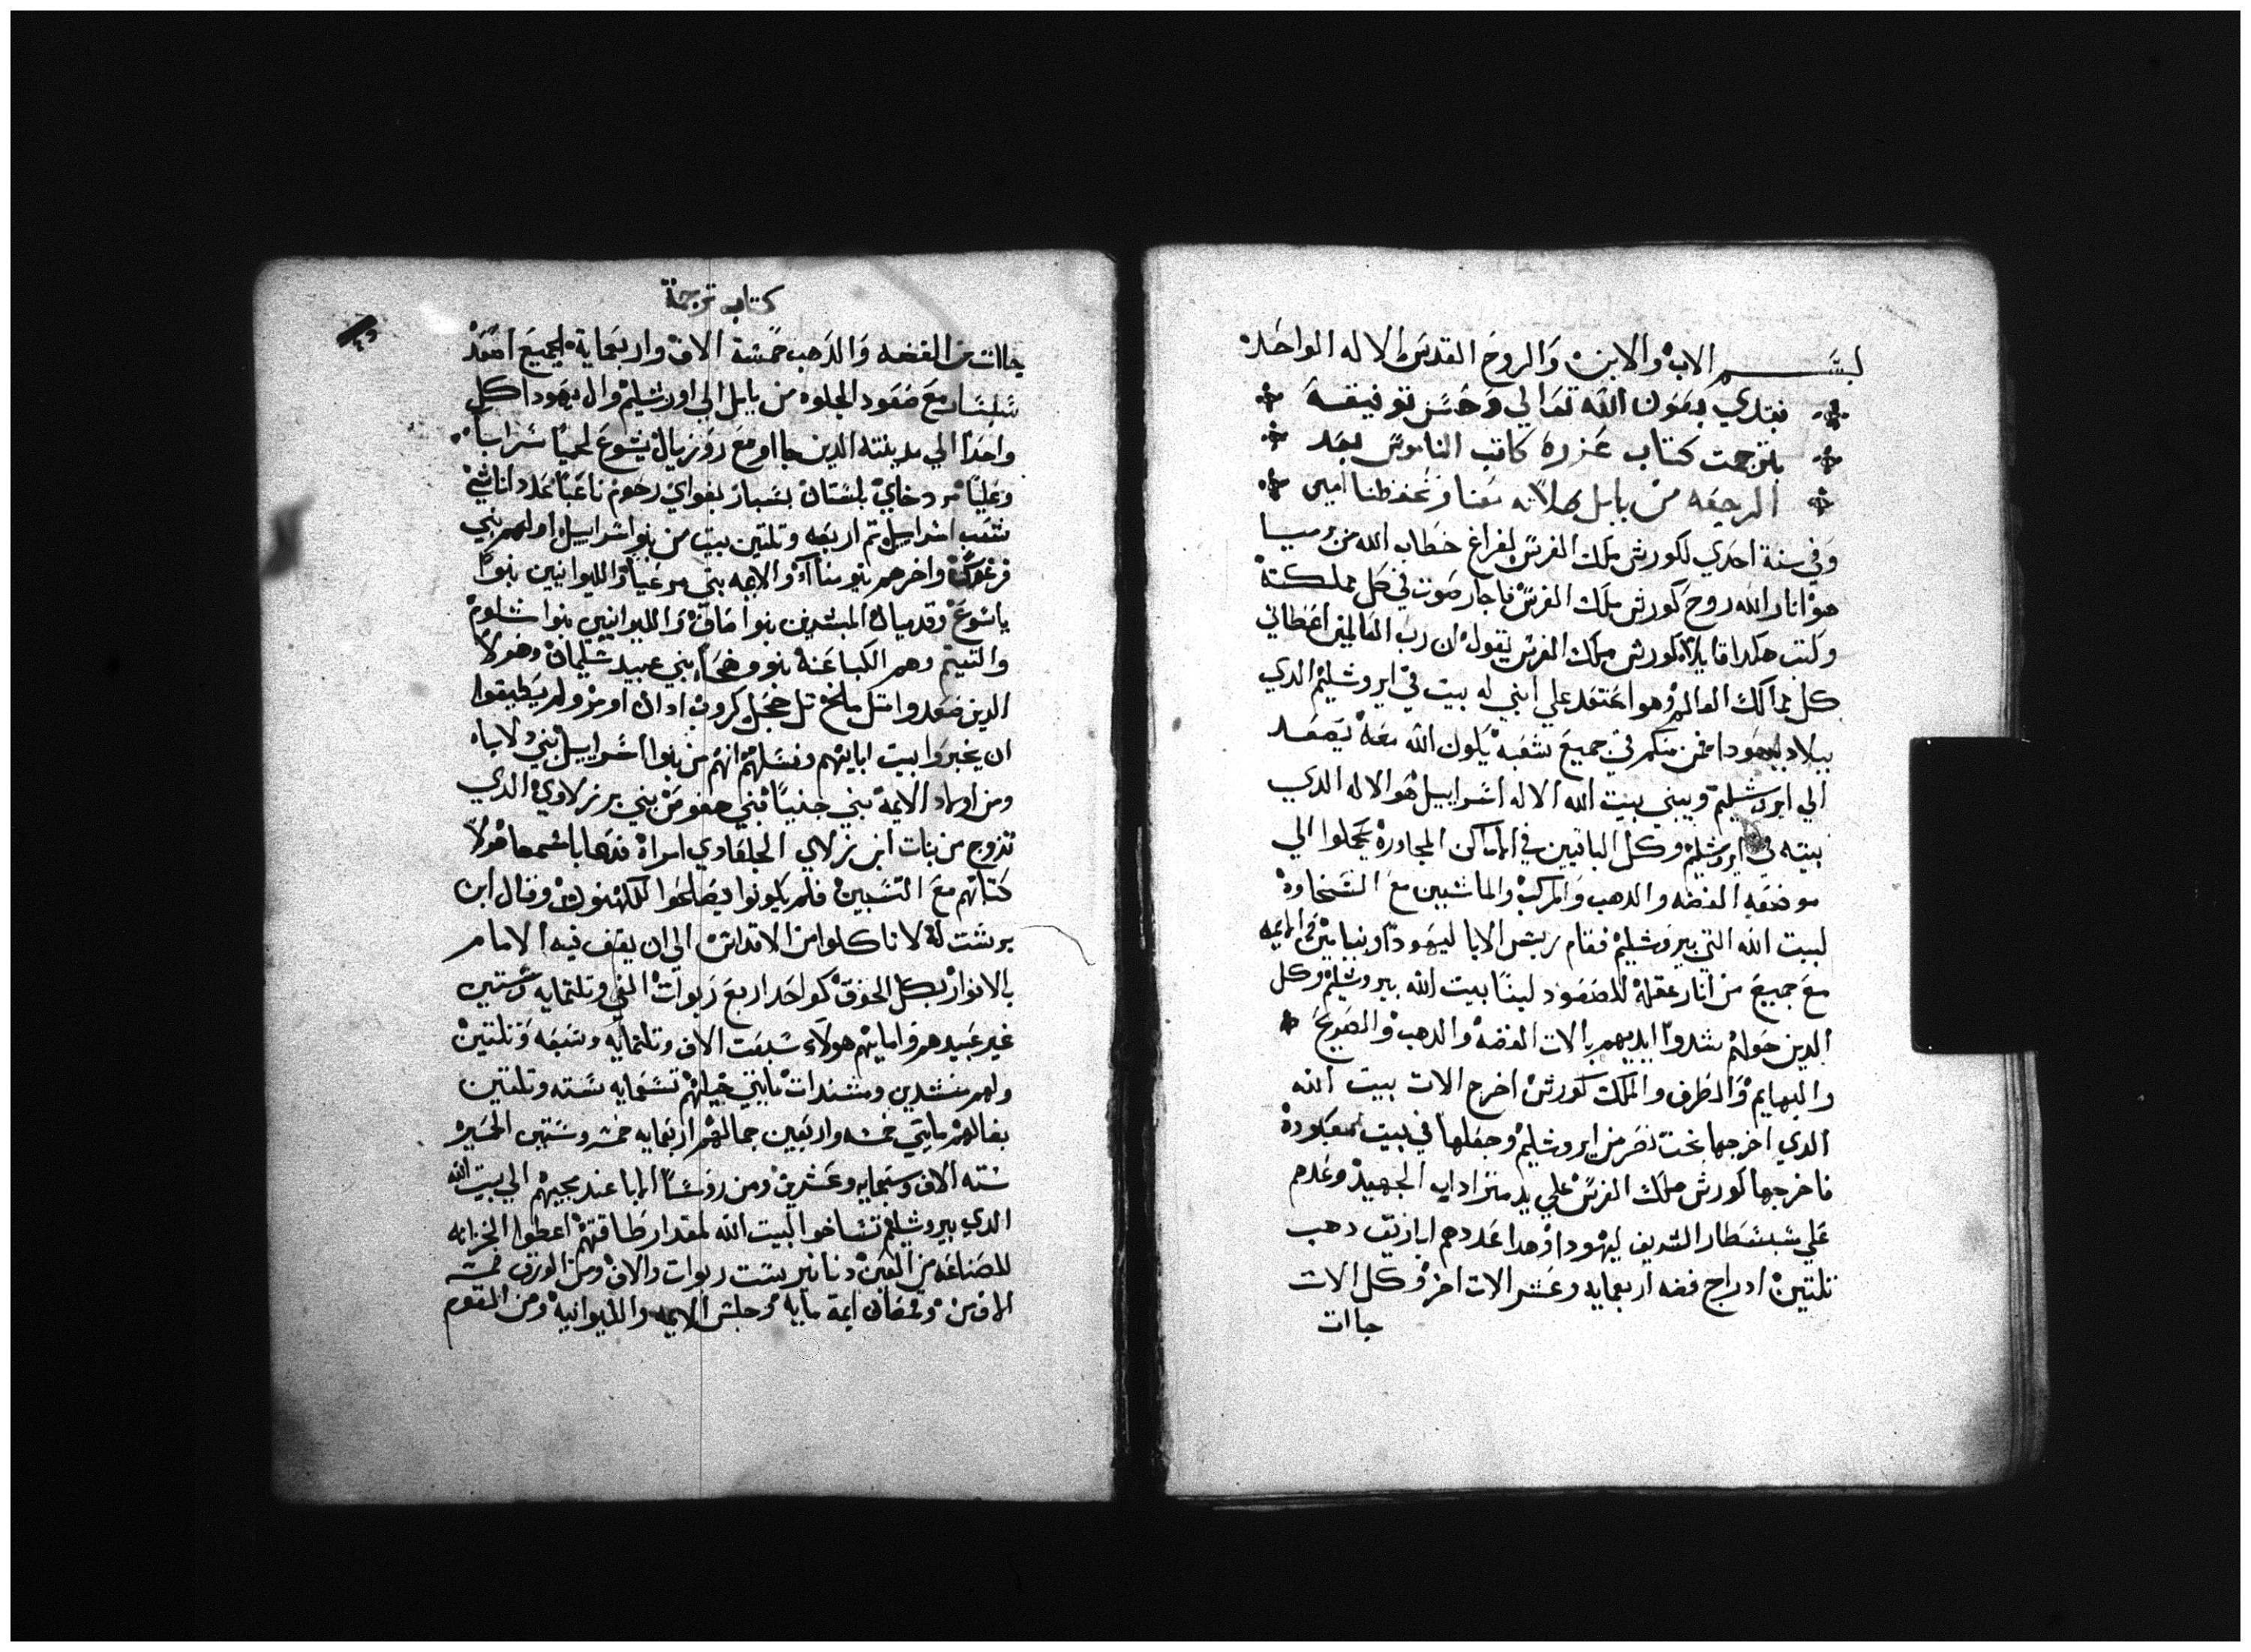 بسم الاب والابن والروح القدس الاله الواحد
نبتدي بعون الله تعالي وحسن توفيقه
بترجمت كتاب عزره كاتب الناموس بعد
الرجعه من بابل صلاته معنا وتحفظنا امين
وفي سنة احدي لكورش ملك الفرس لفراغ خطاب الله من
هو انار الله روح كورش ملك الفرس فاجار صوت في كل مملكته
وكتب هكدا قايلا كورش ملك الفرس يقول ان رب العالمين اعطاني
كل ممالك العالم وهو اعتقد علي ابني له بيت في ايروشليم الدي
ببلاد يهودا فمن منكم في جميع شعبه يكون الله معه يصعد
الي ايروشليم ويبني بيت الله الاله اسراييل هو الاله الدي
بيته في ايروشليم وكل الباقيين في الاماكن المجاورة يحملوا الي
موضعه الفضه والدهب والمركب والماشيين مع السخاوة
لبيت الله التي بيروشليم فقام ريش الابا ليهودا وبنيامين
مع جميع من انار عقله للصعود لبنا بيت الله بيروشليم وكل
الدين حولهم شدوا ايديهم بالات الفضه والدهب والصريح
والبهايم والطرف والملك كورش اخرج الات بيت الله
الدي اخرجها بخت نصر من ايروشليم وجعلها في بيت معبوده
فاخرجها كورش ملك الفرس علي يد متراداب الجهبيد وعدهم
علي شبشطار الشريف ليهودا وهدا عددهم اباريق دهب
تلتين ادراج فضه اربعمايه وعشر الات اخر وكل الالات
جاات
كتاب ترجمة
جاات من الفضه والدهب خمسة الاف واربعماية الجميع اصعد
مع صعود الجلوه من بابل الي اورشليم وال يهودا كل
واحدا الي مدينته الدين جااو مع روزبال يشوع نحميا سرايا
وعليا مردخاي بلشان بسبار بغواي رحوم ناعبا عدد اناشي
شعب اسراييل تم اربعه وتلتين بيت من بنو اسراييل اولهم بني
فرعوش واخرهم بنو سناآه والايمه بني يدعيا والليوانيين بنوا
ياشوع وقدميال المبشدين بنوا اصاف والليوانيين بنوا شلوم
والتيتم وهم الكباعنة بنو وضحا بني عبيد سليمان وهولا
الدين صعدوا من تل ملح تل حجل كروب ادان اومر ولم يطيقوا
ان يخبروا بيت اباييهم ونسلهم انهم من بنوا اسراييل بني دلاياه
ومن اولاد الايمة بني حنيا بني حقوص بني برزلاوي الدي
تزوج من بنات ابن زلاي الجلعادي امراة فدعا باسمها هولا
كتابهم مع النسبين فلم يكونوا يصلحوا للكهنوت وقال ابن
برشت له لا تاكلوا من الاقداس الي ان يقف فيه الامام
بالانوار بكل الجوق كواحد اربع ربوات الفي وتلتمايه وستين
غير عبيدهم وامايهم هولاي سبعت الاف وتلتمايه وسبعه وتلتين
ولهم منشدين ومنشدات مايتي خيلهم تسعمايه سته وتلتين
بغالهم مايتي خمسه واربعين جمالهم اربعمايه خمسه وستين الحمير
سته الاف وسبعمايه وعشرين ومن روسا الابا عند مجيهم الي بيت الله
الدي بيروشليم تشاخوا لبيت الله لمقدار طاقتهم اعطوا الخزانه
للصناعه من العين دنانير ست ربوات والاف ومن الورق خمسه
الاف من وقمصان ايمة مايه وجلس الايمه والليوانيه ومن القوم